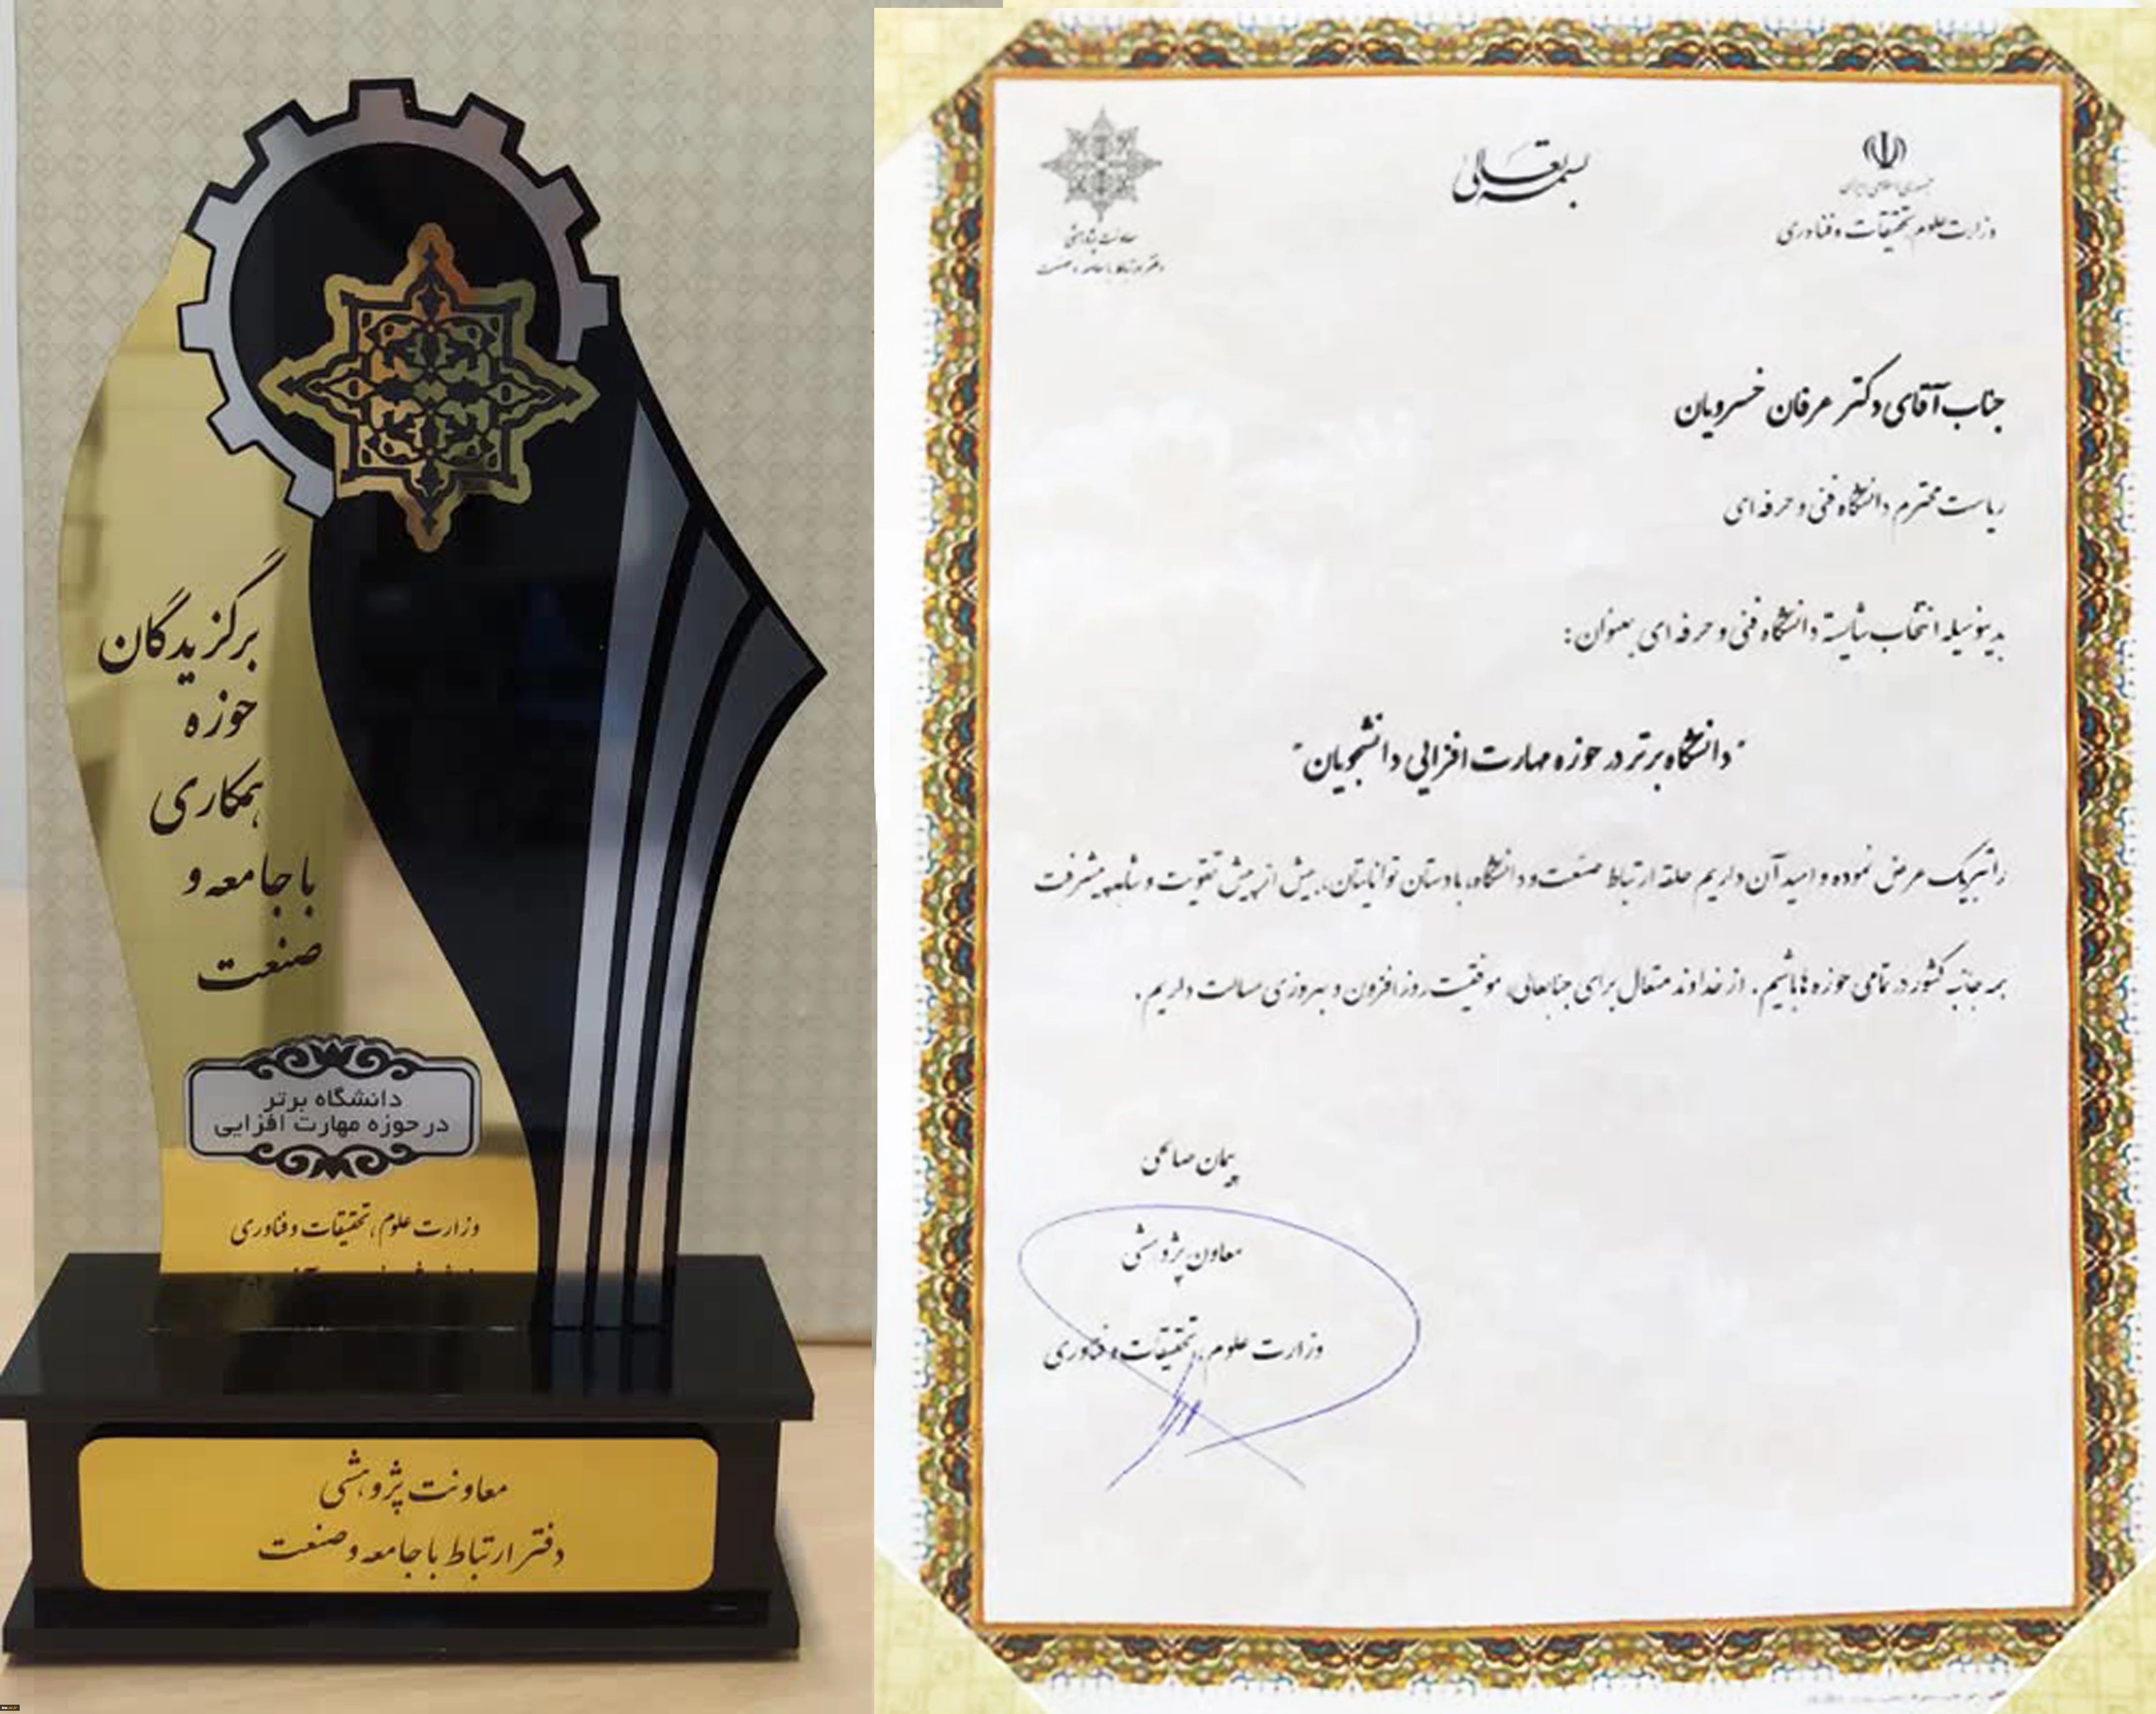 برگزیدگان
حوزه
همکاری
با جامعه و
صنعت
دانشگاه برتر
در حوزه مهارت افزایی
وزارت علوم، تحقیقات و فناوری
معاونت پژوهشی
دفتر ارتباط با جامعه و صنعت
بسمه تعالی
جمهوری اسلامی ایران
وزارت علوم، تحقیقات و فناوری
معاونت پژوهشی
دفتر ارتباط با جامعه و صنعت
جناب آقای دکتر عرفان خسرویان
ریاست محترم دانشگاه فنی و حرفه ای
بدینوسیله انتخاب شایسته دانشگاه فنی و حرفه ای بعنوان:
"دانشگاه برتر در حوزه مهارت افزایی دانشجویان"
را تبریک عرض نموده و امید آن داریم حلقه ارتباط صنعت و دانشگاه، با دستان توانایتان، بیش از پیش تقویت و شاهد پیشرفت
همه جانبه کشور در تمامی حوزه ها باشیم. از خداوند متعال برای جنابعالی، موفقیت روز افزون و بهروزی مسألت داریم.
پیمان صالحی
معاون پژوهشی
وزارت علوم، تحقیقات و فناوری